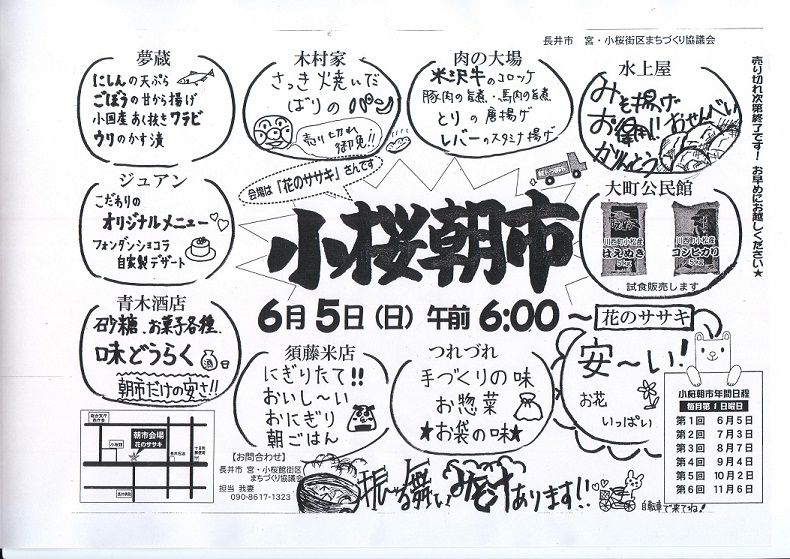 長井市 宮・小桜街区まちづくり協議会
夢蔵
にしんの天ぷら
ごぼうの甘から揚げ
小国産あく抜きワラビ
ウリのかす漬
木村家
さっき焼いだ
ばりのパン
売り切れ
御免!!
肉の大場
米沢牛のコロッケ
豚肉の旨煮・馬肉の旨煮
とりの唐揚げ
レバーのスタミナ揚げ
水上屋
みそ揚げ
お得用!!おせんべい
かりんとう
売り切れ次第終了です! お早めにお越しください★
ジュアン
こだわりの
オリジナルメニュー
フォンダンショコラ
自家製デザート
会場は「花のササキ」さんです
小桜朝市
6月5日(日)午前6:00~
大町公民館
川西町小松産
はえぬき
5kg
川西町小松産
コシヒカリ
5kg
試食販売します
青木酒店
砂糖、お菓子各種
味どうらく
朝市だけの安さ!!
須藤米店
にぎりたて!!
おいし~い
おにぎり
朝ごはん
つれづれ
手づくりの味
お惣菜
★お袋の味★
花のササキ
安~い!
お花
いっぱい
小桜朝市年間日程
毎月第1日曜日
第1回 6月5日
第2回 7月3日
第3回 8月7日
第4回 9月4日
第5回 10月2日
第6回 11月6日
朝市会場
花のササキ
【お問合わせ】
長井市 宮・小桜館街区
まちづくり協議会
担当 我妻
090-8617-1323
振る舞いみそ汁あります!!
自転車で来てね!